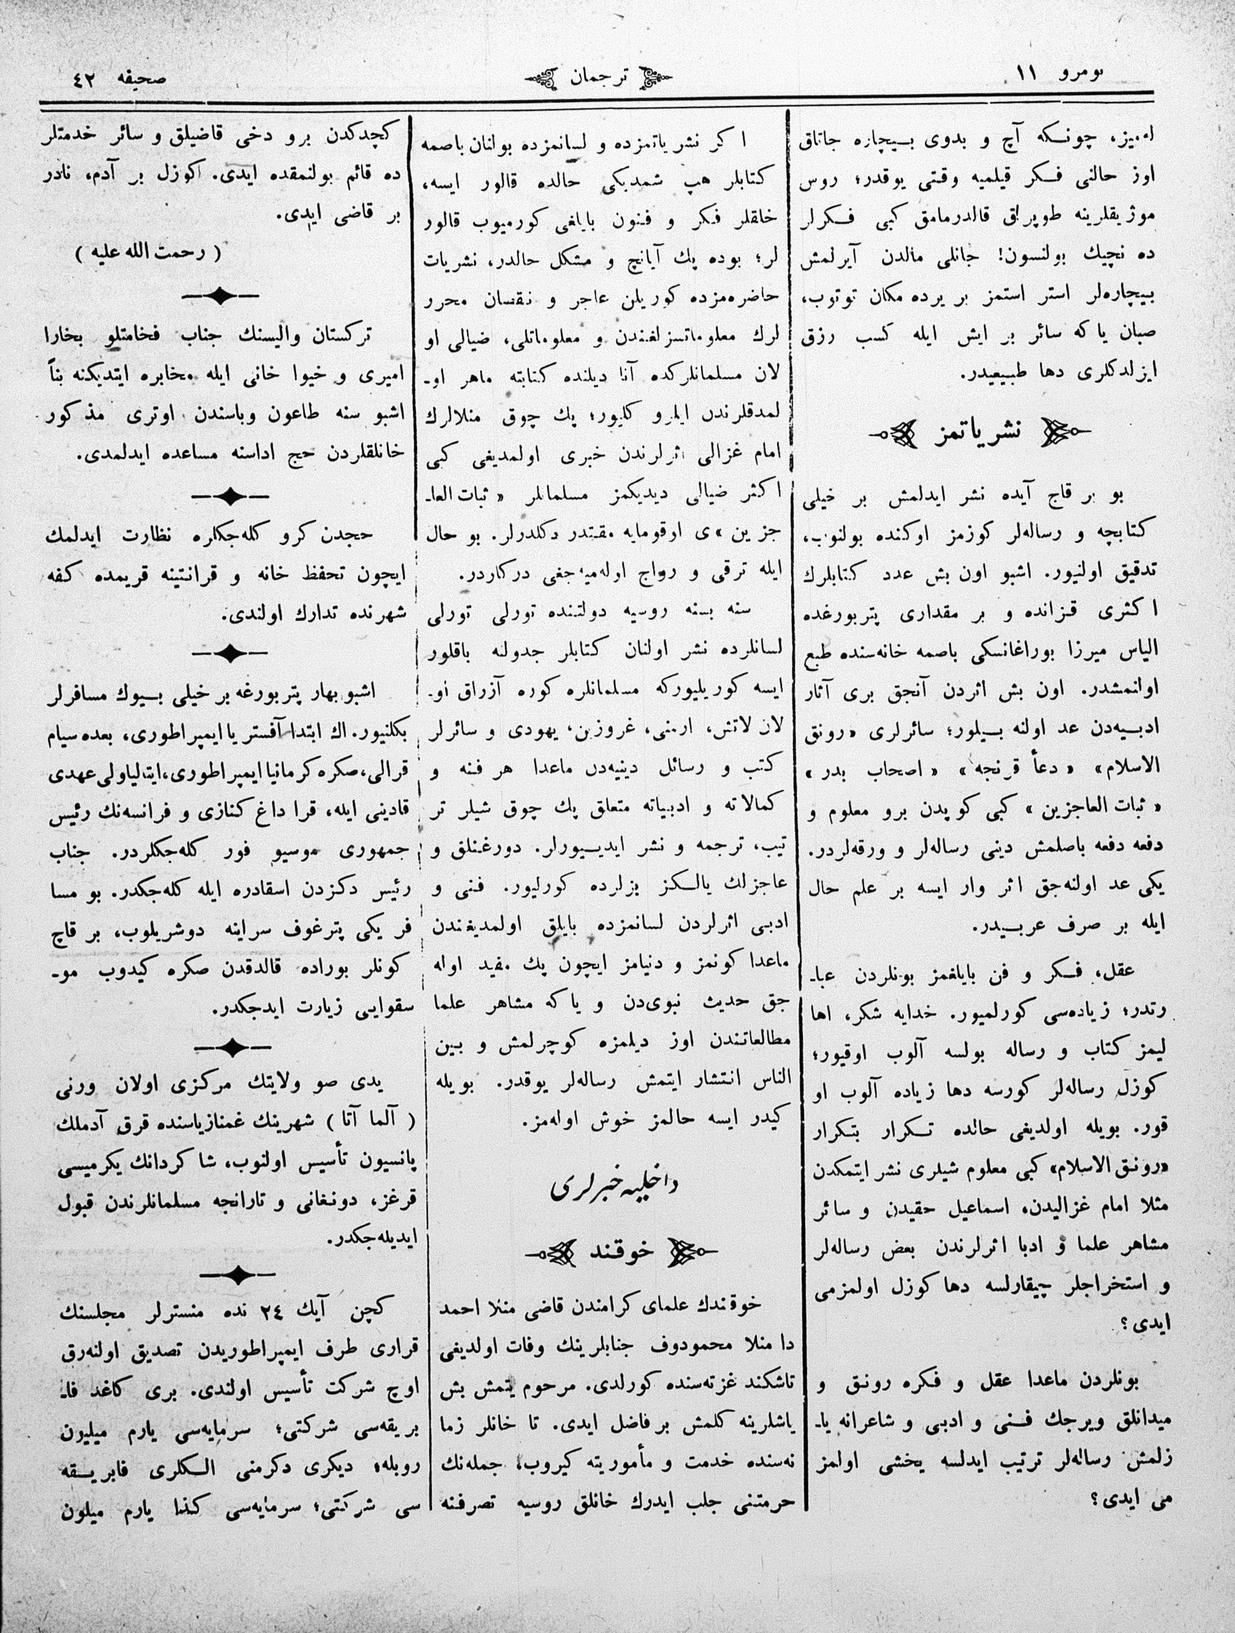 نومرو ١١
ترجمان
صحیفه ٤٢
اه‌میز، چونكه آچ و بدوی بیچاره جاتاق
اوز حالنی فكر قیلمیه وقتی یوقدر؛ روس
موژیقلرینه طوپراق قالدرمامق كبی فكرلر
ده نچیك بولنسون! جانلی مالدن آیرلمش
بیچاره‌لر استر استمز بر یرده مكان توتوب،
صبان یا كه سائر بر ایش ایله كسب رزق
ایزلدكلری دها طبیعیدر.
نشریاتمز
بو بر قاچ آیده نشر ایدلمش بر خیلی
كتابچه و رساله‌لر كوزمز اوكنده بولنوب،
تدقیق اولنیور. اشبو اون بش عدد كتابلرك
اكثری قزانده و بر مقداری پتربورغده
الیاس میرزا بوراغانسكی باصمه خانه‌سنده طبع
اولنمشدر. اون بش اثردن آنجق بری آثار
ادبیه‌دن عد اولنه بیلور؛ سائرلری «رونق
الاسلام» «دعأ قرنجه» «اصحاب بدر»
«ثبات العاجزین» كبی كوپدن برو معلوم و
دفعه دفعه باصلمش دینی رساله‌لر و ورقه‌لردر.
یكی عد اولنه‌جق اثر وار ایسه بر علم حال
ایله بر صرف عربیدر.
عقل، فكر و فن بایلغمز بونلردن عبا-
رتدر؛ زیاده‌سی كورلمیور. خدایه شكر، اها
لیمز كتاب و رساله بولسه آلوب اوقیور؛
كوزل رساله‌لر كورسه دها زیاده آلوب او
قور. بویله اولدیغی حالده تكرار بتكرار
«رونق الاسلام» كبی معلوم شیلری نشر ایتمكدن
مثلا امام غزالیدن، اسماعیل حقیدن و سائر
مشاهر علما و ادبا اثرلرندن بعض رساله‌لر
و استخراجلر چیقارلسه دها كوزل اولمزمی
ایدی؟
بونلردن ماعدا عقل و فكره رونق و
میدانلق ویرجك فنی و ادبی و شاعرانه یا-
زلمش رساله‌لر ترتیب ایدلسه یخشی اولمز
می ایدی؟
اكر نشریاتمزده و لسانمزده بولنان باصمه
كتابلر هپ شمدیكی حالده قالور ایسه،
خلقلر فكر و فنون بایلغی كورمیوب قالور
لر؛ بوده پك آیانچ و مشكل حالدر، نشریات
حاضره‌مزده كوریلن عاجر و نقصان محرر
لرك معلوماتسزلغندن و معلوماتلی، ضیالی او
لان مسلمانلركده آنا دیلنده كتابته ماهر او-
لمدقلرندن ایلرو كلیور؛ پك چوق منلالرك
امام غزالی اثرلرندن خبری اولمدیغی كبی
اكثر ضیالی دیدیكمز مسلمانلر «ثبات العا-
جزین»ی اوقومایه مقتدر دكلدرلر. بو حال
ایله ترقی و رواج اوله‌میه‌جغی دركاردر.
سنه بسنه روسیه دولتنده تورلی تورلی
لسانلرده نشر اولنان كتابلر جدولنه باقلور
ایسه كوریلیوركه مسلمانلره كوره آزراق او-
لان لاتش، ارمنی، غروزین، یهودی و سائرلر
كتب و رسائل دینیه‌دن ماعدا هر فنه و
كمالاته و ادبیاته متعلق پك چوق شیلر تر
تیب، ترجمه و نشر ایدییورلر. دورغنلق و
عاجزلك یالكز بزلرده كورلیور. فنی و
ادبی اثرلردن لسانمزده بایلق اولمدیغندن
ماعدا كونمز و دنیامز ایچون پك مفید اوله
جق حدیث نبوی‌دن و یا كه مشاهر علما
مطالعاتندن اوز دیلمزه كوچرلمش و بین
الناس انتشار ایتمش رساله‌لر یوقدر. بویله
كیدر ایسه حالمز خوش اوله‌مز.
داخلیه خبرلری
خوقند
خوقندك علمای كرامندن قاضی منلا احمد
دا منلا محمودوف جنابلرینك وفات اولدیغی
تاشكند غزته‌سنده كورلدی. مرحوم یتمش بش
یاشلرینه كلمش بر فاضل ایدی. تا خانلر زما
نه‌سنده خدمت و مأموریته كیروب، جمله‌نك
حرمتنی جلب ایدرك خانلق روسیه تصرفنه
كچدكدن برو دخی قاضیلق و سائر خدمتلر
ده قائم بولنمقده ایدی. اكوزل بر آدم، نادر
بر قاضی ایدی.
(رحمت الله علیه)
تركستان والیسنك جناب فخامتلو بخارا
امیری و خیوا خانی ایله مخابره ایتدیكنه بناً
اشبو سنه طاعون وباسندن اوتری مذكور
خانلقلردن حج اداسنه مساعده ایدلمدی.
حجدن كرو كله‌جكلره نظارت ایدلمك
ایچون تحفظ خانه و قرانتینه قریمده كفه
شهرنده تدارك اولندی.
اشبو بهار پتربورغه بر خیلی بیوك مسافرلر
بكلنیور. اك ابتدا آفستریا ایمپراطوری، بعده سیام
قرالی، صكره كرمانیا ایمپراطوری، ایتالیا ولی عهدی
قادینی ایله، قرا داغ كنازی و فرانسه‌نك رئیس
جمهوری موسیو فور كله‌جكلردر. جناب
رئیس دكزدن اسقادره ایله كله‌جكدر. بو مسا
فر یكی پترغوف سراینه دوشریلوب، بر قاچ
كونلر بوراده قالدقدن صكره كیدوب مو-
سقوایی زیارت ایدجكدر.
یدی صو ولایتك مركزی اولان ورنی
(آلما آتا) شهرینك غمنازیاسنده قرق آدملك
پانسیون تأسیس اولنوب، شاكردانك یكرمیسی
قرغز، دونغانی و تارانچه مسلمانلرندن قبول
ایدیله‌جكدر.
كچن آیك ٢٤ نده منسترلر مجلسنك
قراری طرف ایمپراطوریدن تصدیق اولنه‌رق
اوچ شركت تأسیس اولندی. بری كاغد فا-
بریقه‌سی شركتی؛ سرمایه‌سی یارم میلیون
روبله، دیكری دكرمنی الكلری فابریقه
سی شركتی؛ سرمایه‌سی كذا یارم میلون